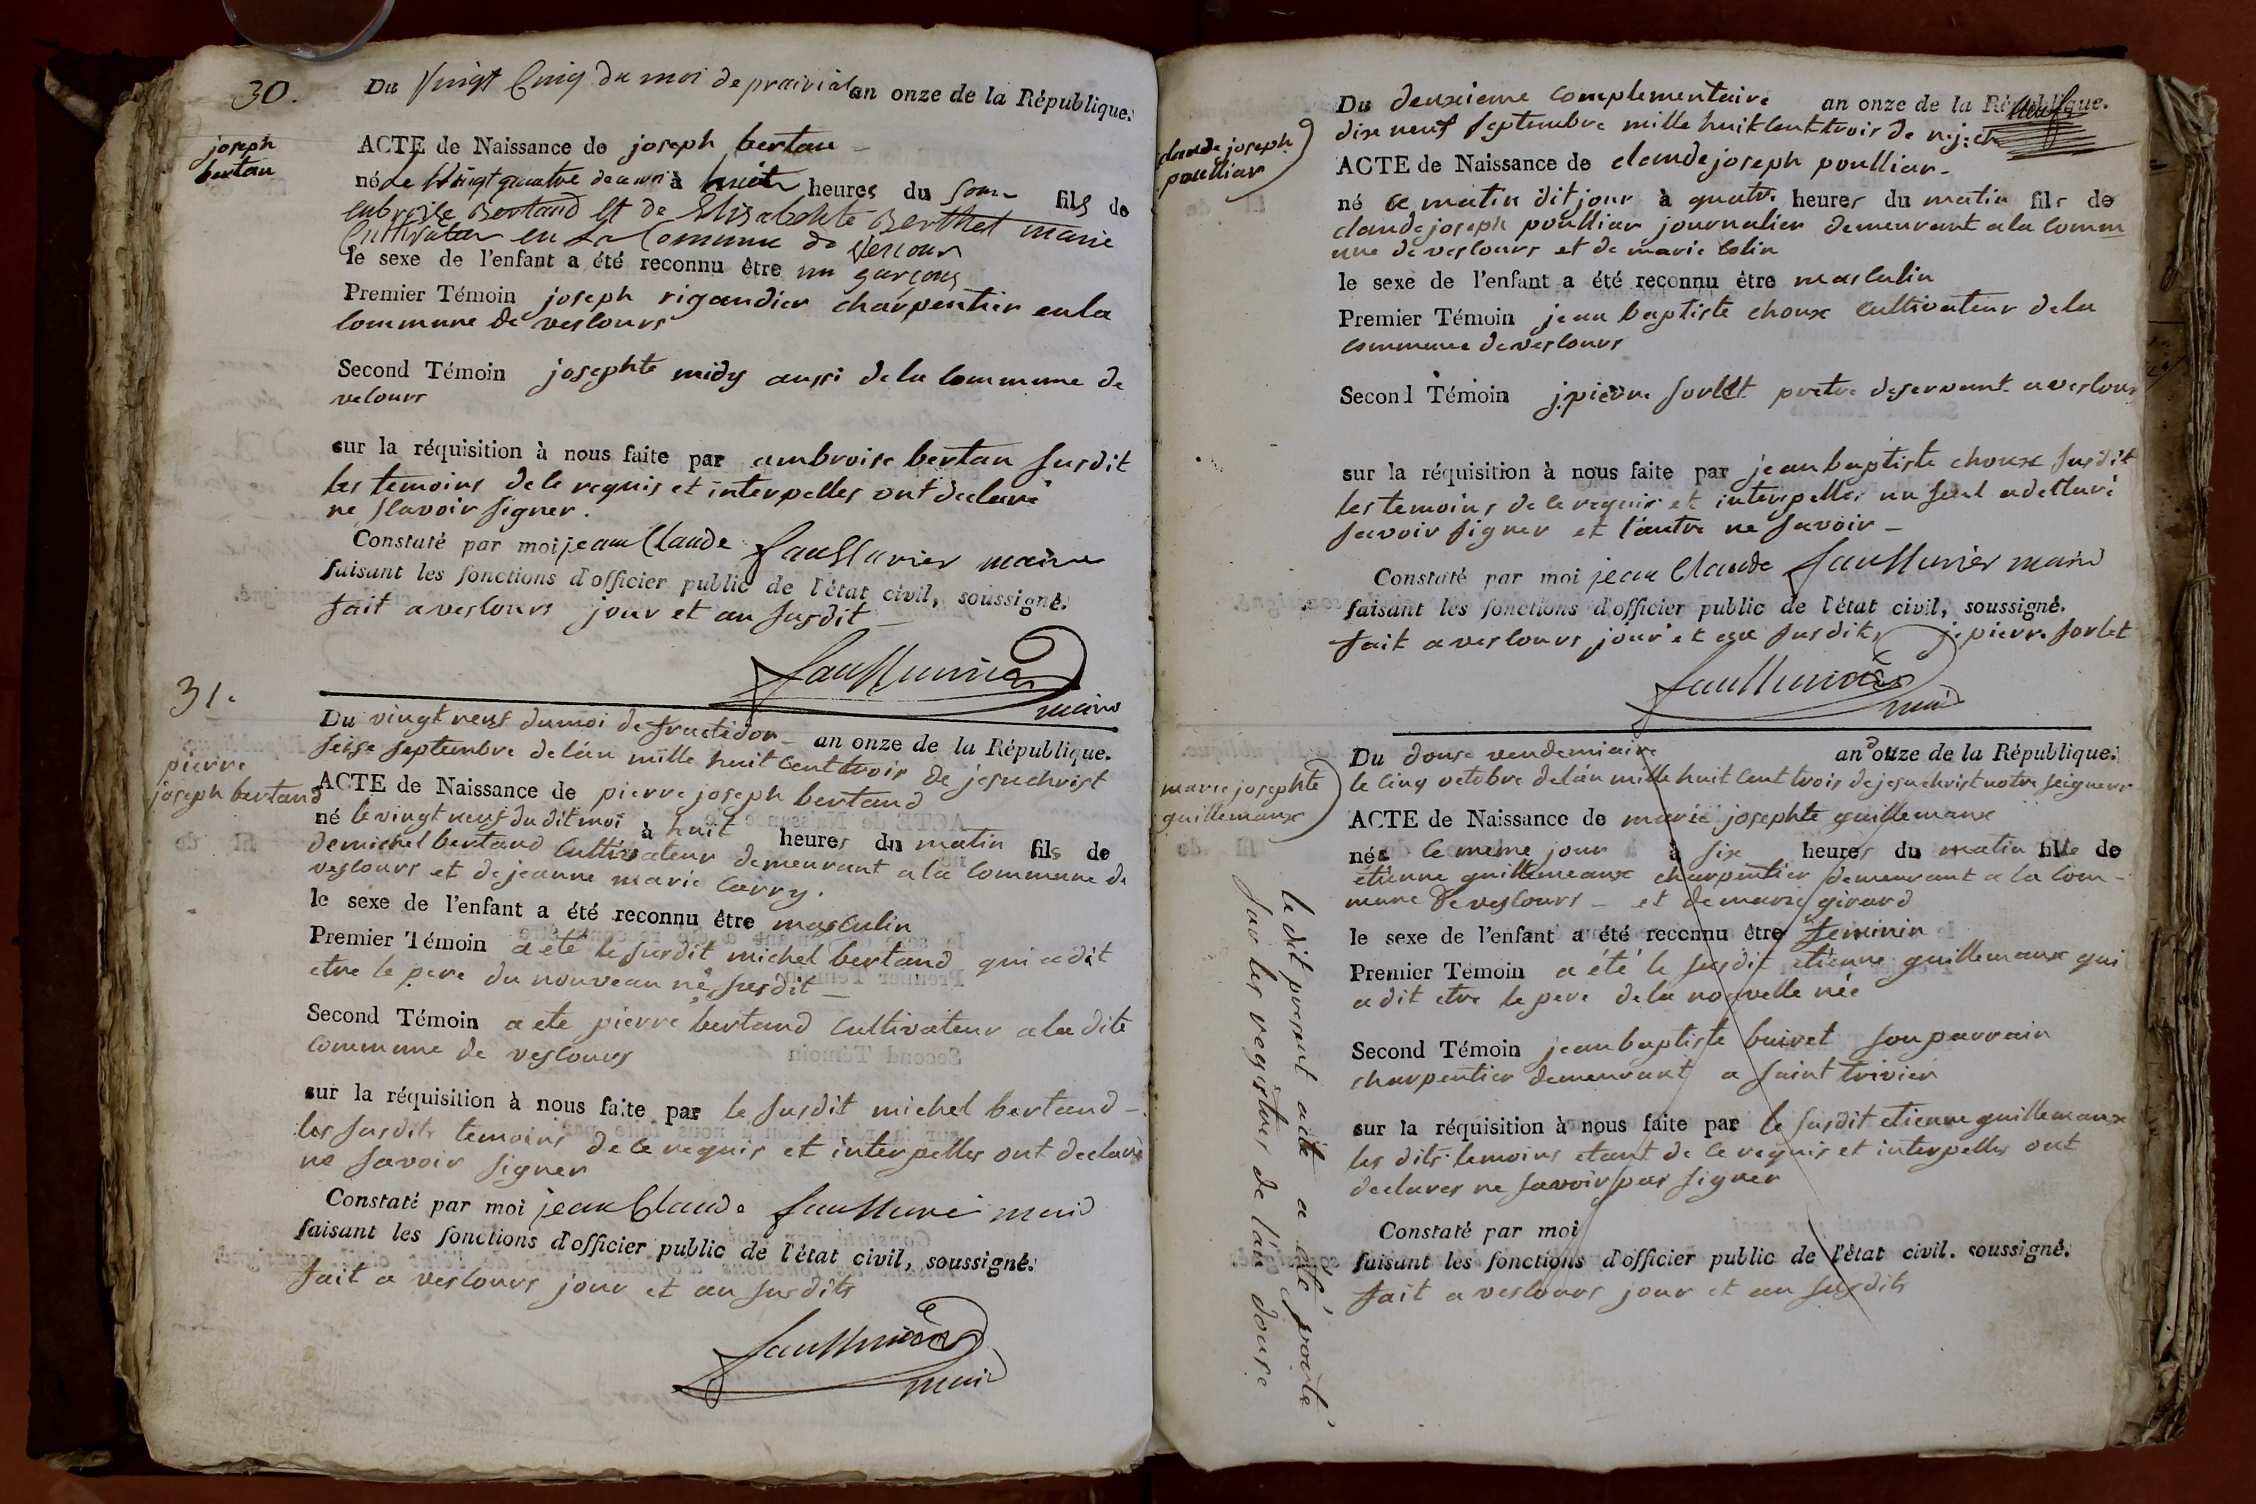 30.
Du Vingt Cinq du moi de prairial an onze de la République.
joseph
bertan
ACTE de Naissance de joseph bertan
né le Vingt quatre de ce moi à huit heures du soir fils de
enbroise Bertand et de Elisabehte Berthet marie
Cultivateur en la Commune de Vescour
le sexe de l'enfant a été reconnu être un garçong
Premier Témoin joseph rigaudier charpentier en la
commune de vescours
Second Témoin josephte midy aussi de la commune de
velours
sur la réquisition à nous faite par ambroise bertan susdit
les temoins de ce requis et interpelles ont declaré
ne sçavoir signer.
Constaté par moi jean Claude faussurier maire
faisant les fonctions d'officier public de l'état civil, soussigné.
fait a vescours jour et an susdit
faussurier
maire
31.
Du vingt neuf du moi de fructidor an onze de la République.
seise septembre de l'an mille huit cent trois de jesuchrist
pierre
joseph bertand
ACTE de Naissance de pierre joseph bertand
né le vingt neuf du dit moi à huit heures du matin fils de
de michel bertand cultivateur demeurant a la commune de
vescours et de jeanne marie carry.
le sexe de l'enfant a été reconnu être masculin
Premier Témoin a été le susdit michel bertand qui a dit
etre le pere du nouveau né susdit
Second Témoin a ete pierre bertand cultivateur a la dite
commune de vescours
sur la réquisition à nous faite par le susdit michel bertand
les susdits temoins de ce requis et interpelles ont declaré
ne savoir signer
Constaté par moi jean Claude faussurié maire
faisant les fonctions d'officier public de l'état civil, soussigné.
fait a vescours jour et an susdits
faussurier
maire
Du deuxieme complementaire an onze de la République.
dix neuf septembre mille huit cent trois de n. j. ch
claude joseph
poulliar
ACTE de Naissance de claude joseph poulliar
né ce matin dit jour à quatre heures du matin fils de
claude joseph poulliar journalier demeurant a la comm
une de vescours et de marie colin
le sexe de l'enfant a été reconnu être masculin
Premier Témoin jean baptiste choux cultivateur de la
commune de vescours
Second Témoin j. pierre sorlet pretre deservant a vescours
sur la réquisition à nous faite par jean baptiste choux susdit
les temoins de ce requis et interpelles un seul a dellaré
savoir signer et l'autre ne savoir
Constaté par moi jean Claude faussurier maire
faisant les fonctions d'officier public de l'état civil, soussigné.
fait a vescours jour et an susdits j. pierre sorlet
faussurier
maire
Du douse vendemiaire an douze de la République.
le cinq octobre de l'an mille huit cent trois de jesuchrist notre seigneur
marie josephte
guillemaux
ACTE de Naissance de marie josephte guillemaux
née le meme jour à six heures du matin fille de
etienne guillemeaux charpentier demeurant a la com-
mune de vescours et de marie girard
le sexe de l'enfant a été reconnu être feminin
Premier Témoin a été le susdit etienne guillemaux qui
a dit etre le pere de la nouvelle née
Second Témoin jean baptiste buiret son parrain
charpentier demeurant a saint trivier
sur la réquisition à nous faite par le susdit etienne guillemaux
les dits temoins etant de ce requis et interpelles ont
declarer ne savoir pas signer
Constaté par moi
faisant les fonctions d'officier public de l'état civil. soussigné.
fait a vescours jour et an susdits
le dit present acte a été porté
sur les registres de l'an douse